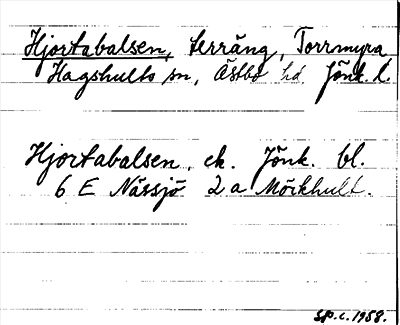 Hjortabalsen, terräng, Torrmyra
Hagshults sn, Östbo hd. Jönk. l.
Hjortabalsen. ek. Jönk. bl.
6 E Nässjö 2 a Mörkhult.
SP.c. 1958.